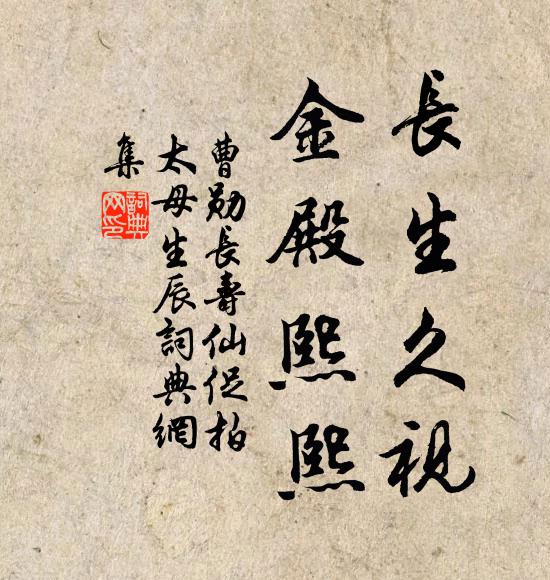 長生久視
金殿熙熙
曹勛長壽仙促拍
太母生辰詞典網
集
詞典
网印